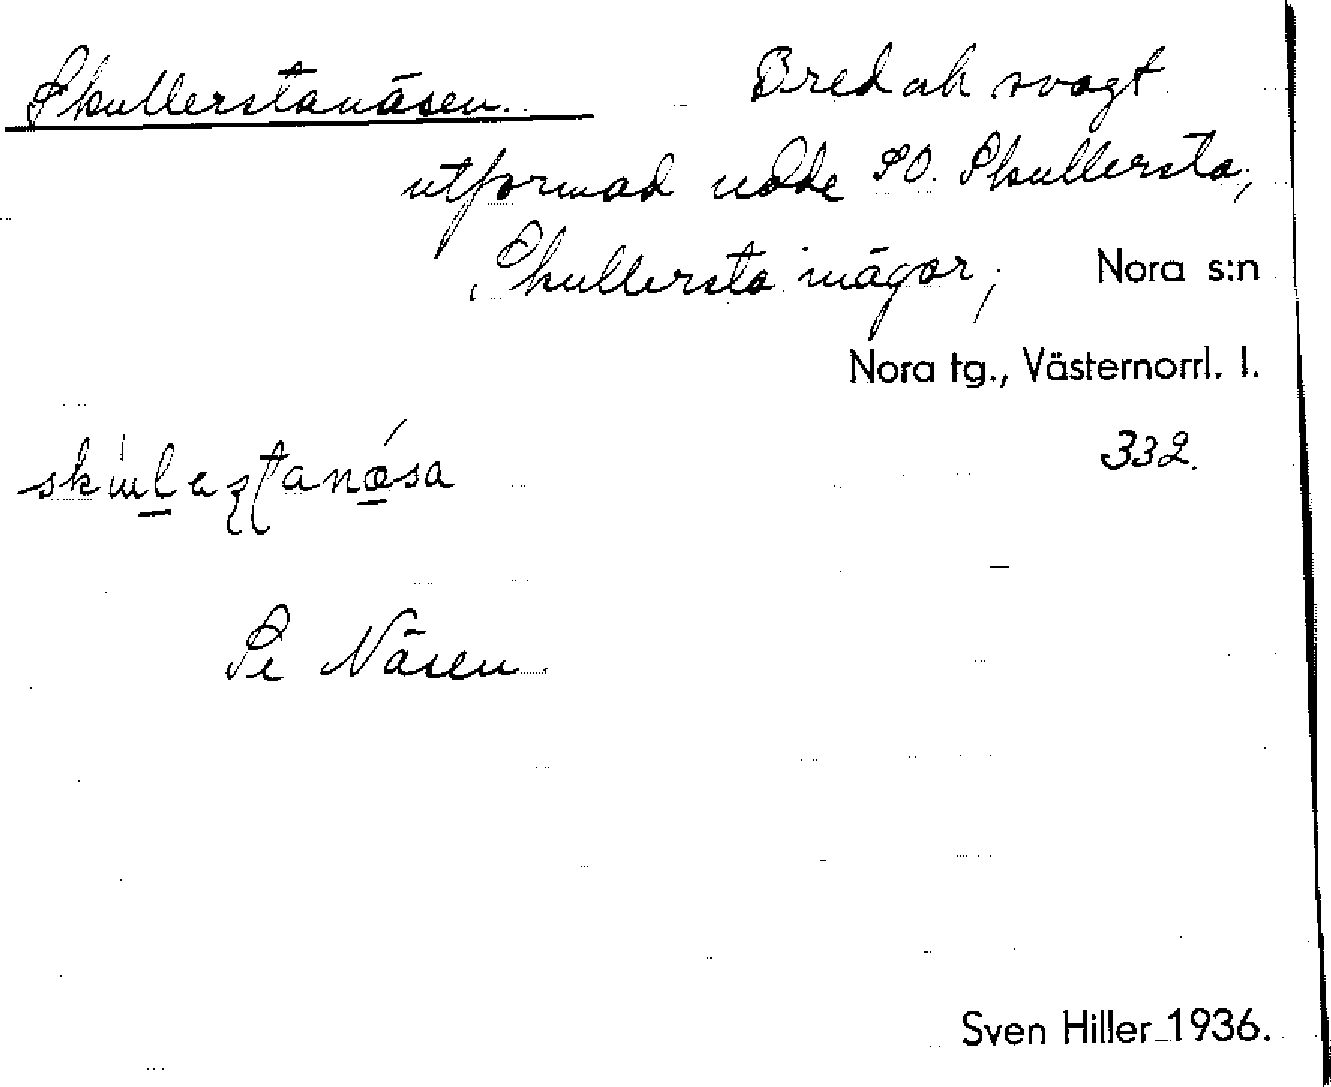 Skullerstanäsen. Bred ock svagt
utformad udde SO. Skullersta,
Skullersta inägor, Nora s:n
Nora tg., Västernorrl. l.
332.
Se Näsen
Sven Hiller 1936.